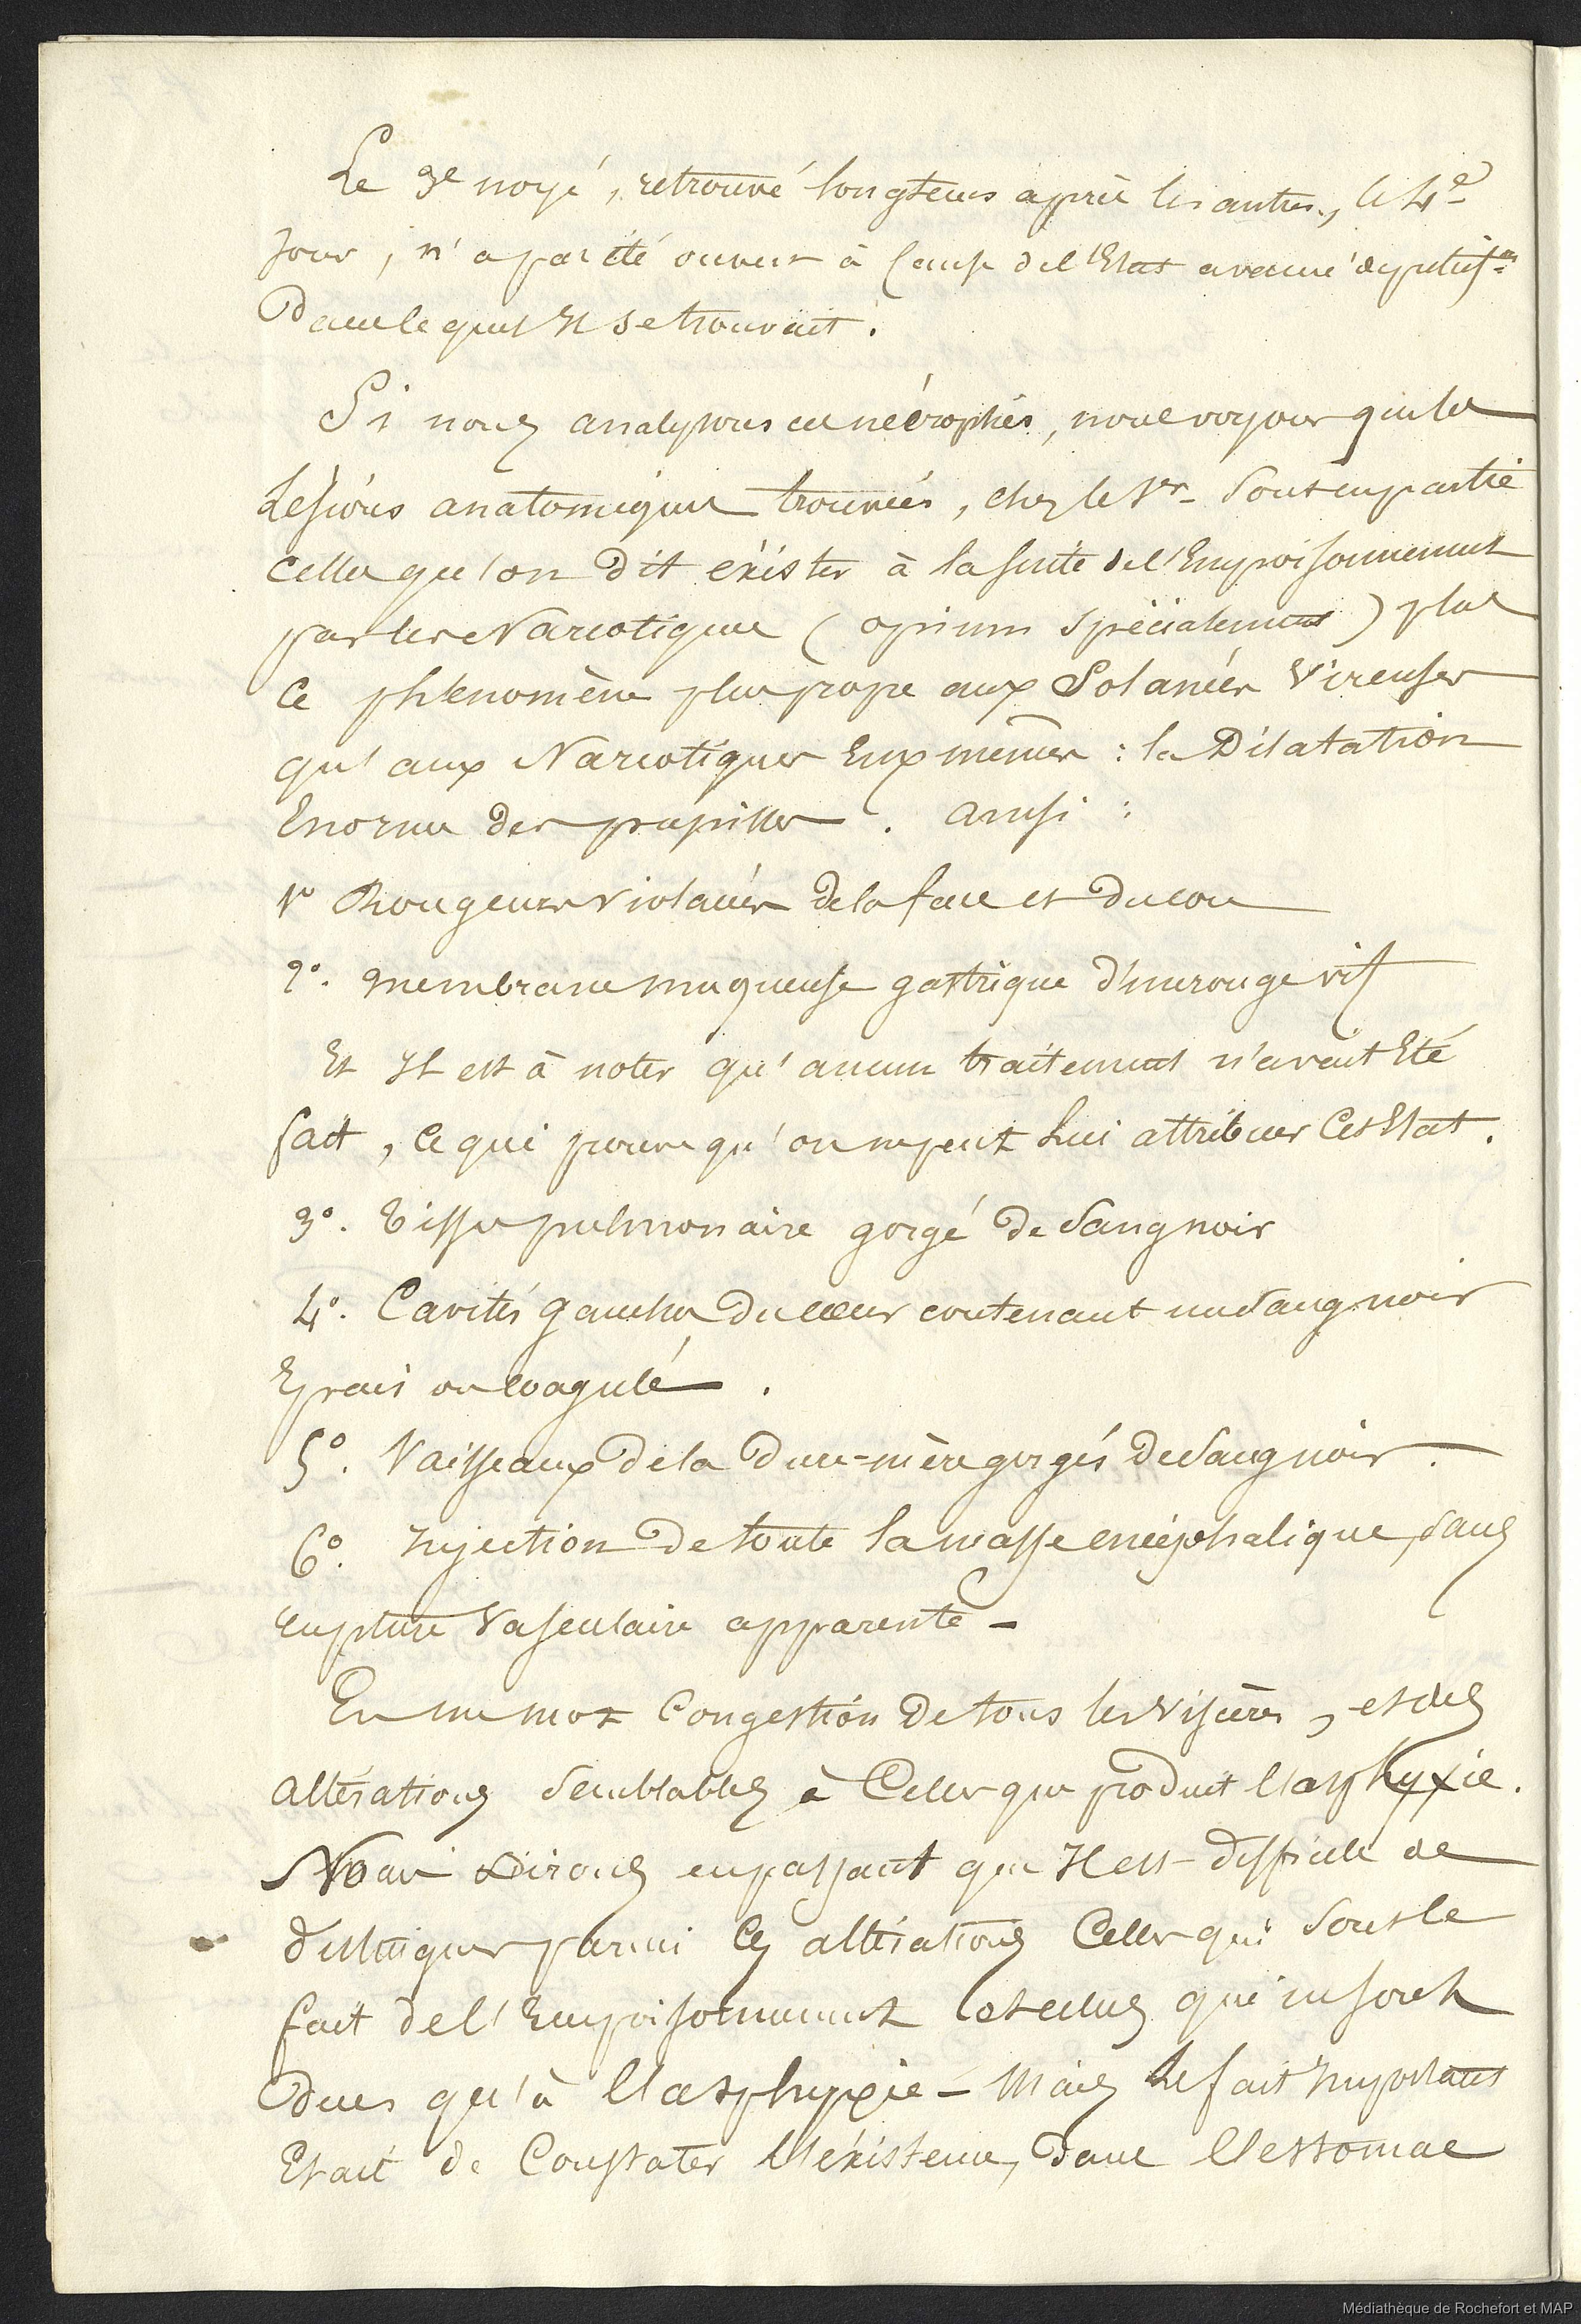 Le 3e noyé, retrouvé longtems après les autres, le 4e
jour, n'a pas été ouvert à Cause de l'Etat avancé de putréfon
Dans lequel Il se trouvait.
Si nous analysons ces nécropsies, nous voyons que les
Lésions anatomiques trouvées, chez le 1er sont en partie
Celles qu'on Dit exister à la suite de l'Empoisonnement
par les Narcotiques (opium spécialement) plus
Ce phénomène plus propre aux Solanées Vireuses
qu'aux Narcotiques Eux mêmes : la Dilatation
Enorme des pupilles. ainsi :
1o Rougeurs violacées de la face et Du cou
2o. membrane muqueuse gastrique d'un rouge vif
Et Il est à noter qu'aucun traitement n'avait Eté
fait, Ce qui prouve qu'on ne peut Lui attribuer Cet Etat.
3o. Tissu pulmonaire gorgé De Sang noir
4o. Cavités gauches Du cœur contenant un Sang noir
Epais ou coagulé.
5o. Vaisseaux De la Dure-mère gorgés De Sang noir.
6o. Injection De toute la masse encéphalique, sans
rupture Vasculaire apparente -
En un mot Congestion De tous les Viscères, et des
altérations Semblables à Celles que produit l'asphyxie.
Nous Dirons en passant que Il est difficile de
distinguer parmi Ces altérations Celles qui sont le
fait de l'Empoisonnement et celles qui ne sont
Dues qu'à l'asphyxie - Mais Le fait Important
Etait de Constater l'existence, Dans l'estomac
Médiathèque de Rochefort et MAP